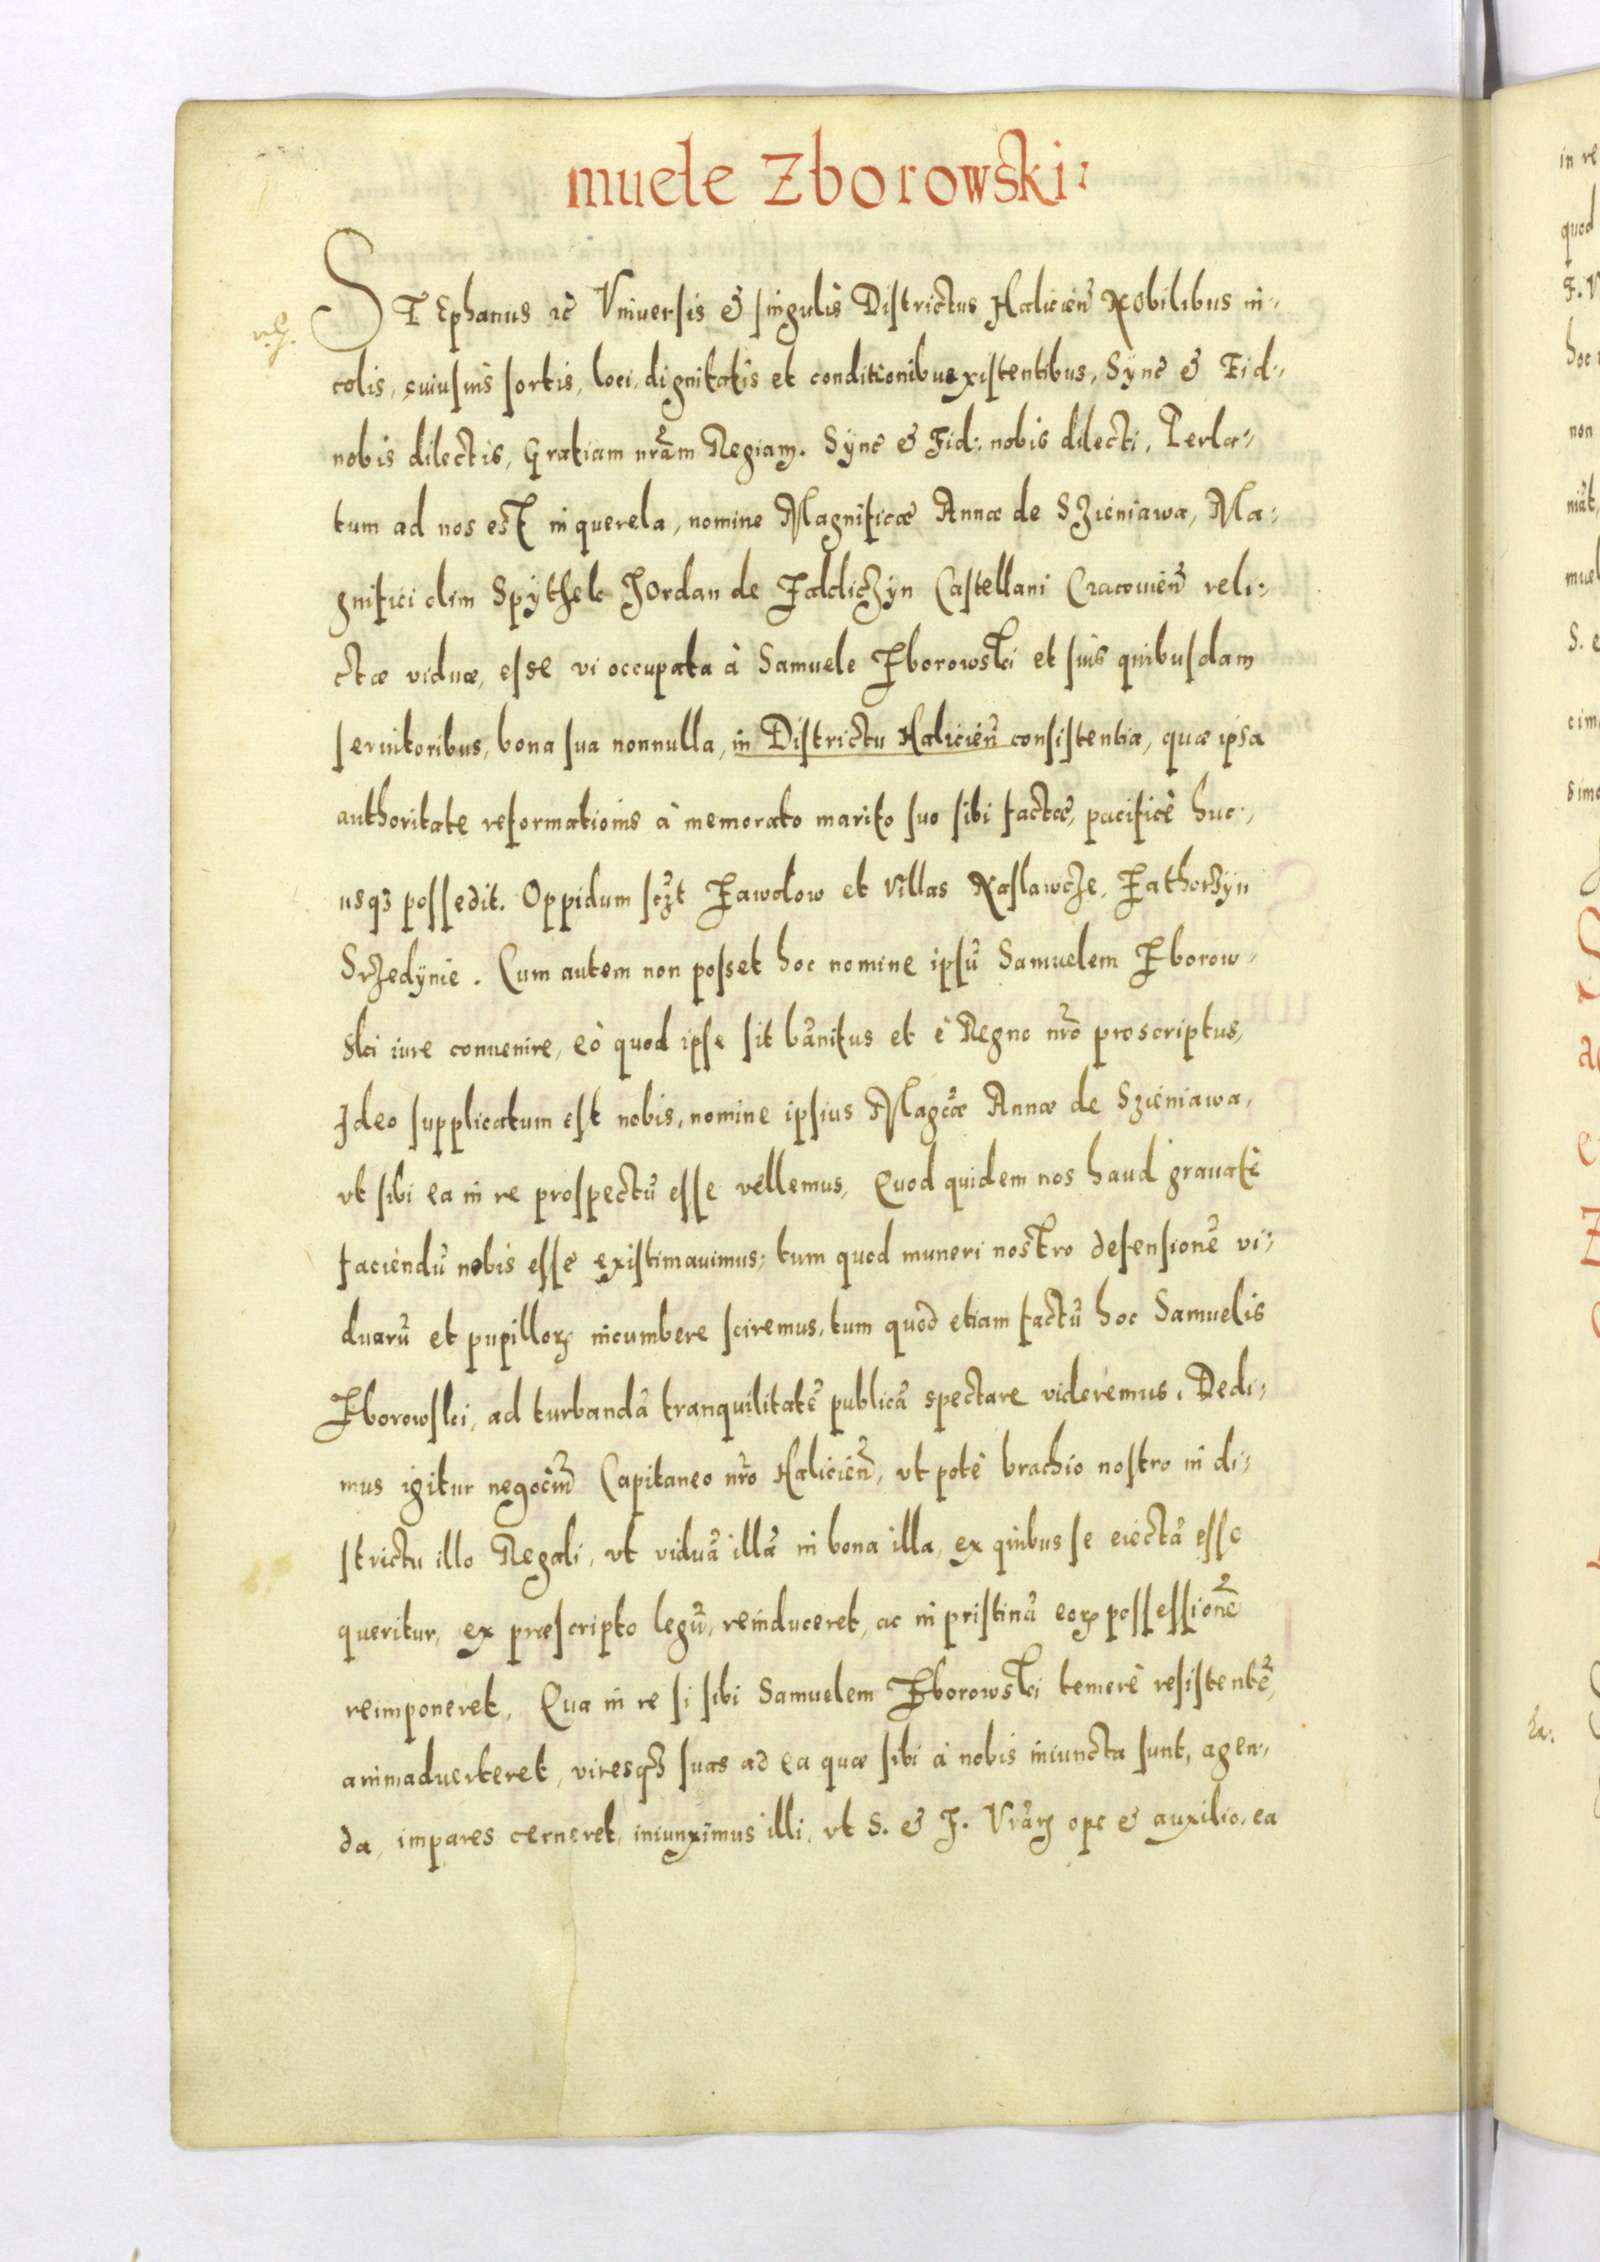 muele Zborowski:
STEphanus ec̃ Vniuersis & singulis Districtus Halicieñ Nobilibus in-
colis, cuiusuis sortis, loci, dignitatis et conditionibus existentibus, Synč & Fid:,
nobis dilectis, Gratiam nrãm Regiam. Synč & Fid: nobis dilecti, Perla-
tum ad nos est in querela, nomine Magnificæ Annæ de Szieniawa, Ma-
gnifici olim Spythek Jordan de Zakliczyn Castellani Cracouieñ reli-
ctæ viduæ, esse vi occupata à Samuele Zborowski et suis quibusdam
seruitoribus, bona sua nonnulla, in Districtu Halicieñ consistentia, quæ ipsa
authoritate reformationis à memorato marito suo sibi factæ, pacificè huc-
usqꝫ possedit. Oppidum sczt Zawalow et Villas Naslawcze, Zathorzyn
Srzedynie. Cum autem non posset hoc nomine ipsũ Samuelem Zborow-
ski iure conuenire, eò quod ipse sit bãnitus et è Regno nrõ proscriptus,
Ideo supplicatum est nobis, nomine ipsius Magcæ Annæ de Szieniawa,
vt sibi ea in re prospectũ esse vellemus, Quod quidem nos haud grauatè
faciendũ nobis esse existimauimus, tum quod muneri nostro defensionẽ vi-
duarũ et pupilloꝝ incumbere sciremus, tum quod etiam factũ hoc Samuelis
Zborowski, ad turbandã tranquilitatẽ publicã spectare videremus. Dedi-
mus igitur negociũ Capitaneo nrõ Halicieñ, vt potè brachio nostro in di-
strictu illo Regali, vt viduã illã in bona illa, ex quibus se eiectã esse
queritur, ex præscripto legũ, reinduceret, ac in pristinã eoꝝ possessionẽ
reimponeret, Qua in re si sibi Samuelem Zborowski temerè resistentẽ,
animaduerteret, viresqꝫ suas ad ea quæ sibi à nobis iniuncta sunt, agen-
da, impares cerneret, iniunximus illi, vt S. & F. Vrãꝝ ope & auxilio, ea
in re
quod
hoc
non